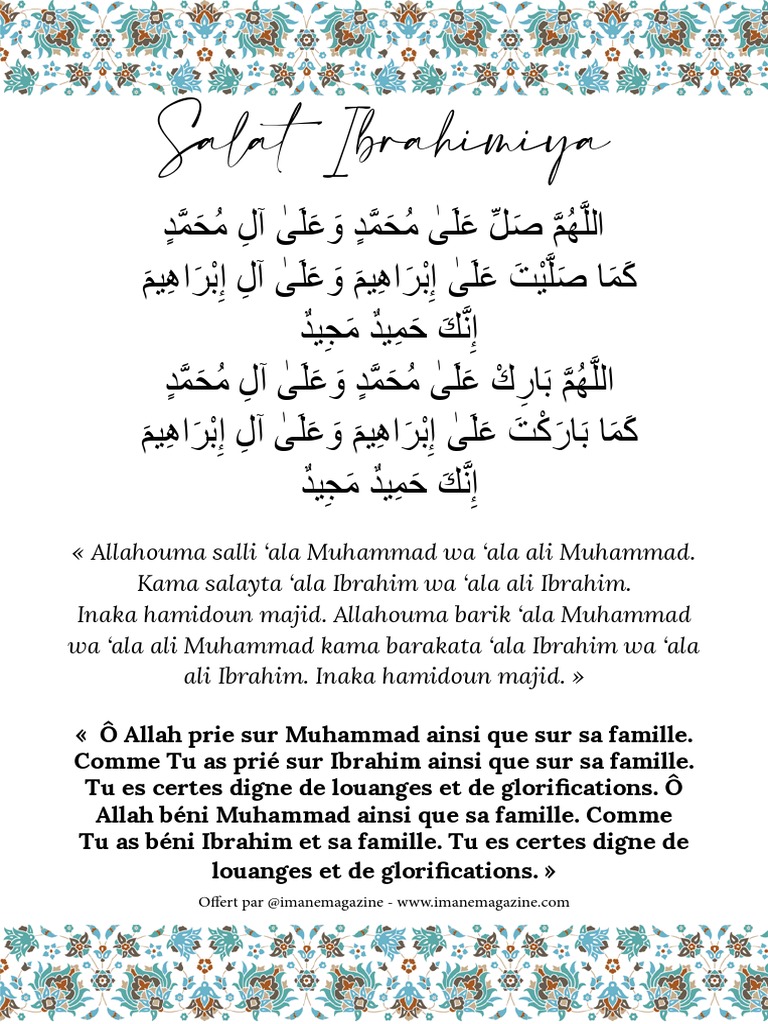 Salat Ibrahimiya
اللَّهُمَّ صَلِّ عَلَىٰ مُحَمَّدٍ وَعَلَىٰ آلِ مُحَمَّدٍ
كَمَا صَلَّيْتَ عَلَىٰ إِبْرَاهِيمَ وَعَلَىٰ آلِ إِبْرَاهِيمَ
إِنَّكَ حَمِيدٌ مَجِيدٌ
اللَّهُمَّ بَارِكْ عَلَىٰ مُحَمَّدٍ وَعَلَىٰ آلِ مُحَمَّدٍ
كَمَا بَارَكْتَ عَلَىٰ إِبْرَاهِيمَ وَعَلَىٰ آلِ إِبْرَاهِيمَ
إِنَّكَ حَمِيدٌ مَجِيدٌ
« Allahouma salli ‘ala Muhammad wa ‘ala ali Muhammad.
Kama salayta ‘ala Ibrahim wa ‘ala ali Ibrahim.
Inaka hamidoun majid. Allahouma barik ‘ala Muhammad
wa ‘ala ali Muhammad kama barakata ‘ala Ibrahim wa ‘ala
ali Ibrahim. Inaka hamidoun majid. »
« Ô Allah prie sur Muhammad ainsi que sur sa famille.
Comme Tu as prié sur Ibrahim ainsi que sur sa famille.
Tu es certes digne de louanges et de glorifications. Ô
Allah béni Muhammad ainsi que sa famille. Comme
Tu as béni Ibrahim et sa famille. Tu es certes digne de
louanges et de glorifications. »
Offert par @imanemagazine - www.imanemagazine.com